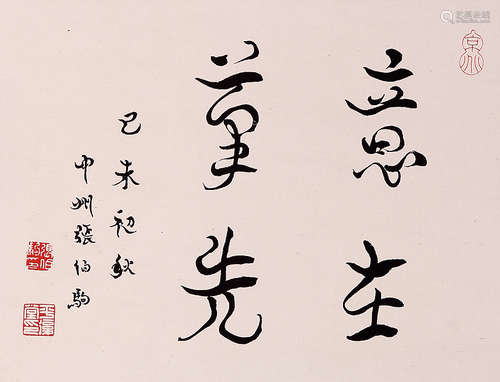 意在
筆先
己未初秋
中州張伯駒